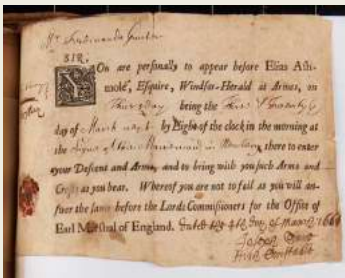 Mr Ferdinando
SIR,
YOu are personally to appear before Elias Ash-
mole, Esquire, Windsor-Herald at Arms, on
Thursday being the
day of March next by Eight of the clock in the morning at
the Signe of the in there to enter
your Descent and Arms, and to bring with you such Arms and
Crests as you bear. Whereof you are not to fail as you will an-
swer the same before the Lords Commissioners for the Office of
Earl Marshal of England. Dated the 4th Day of March 166
Joseph
High Constable